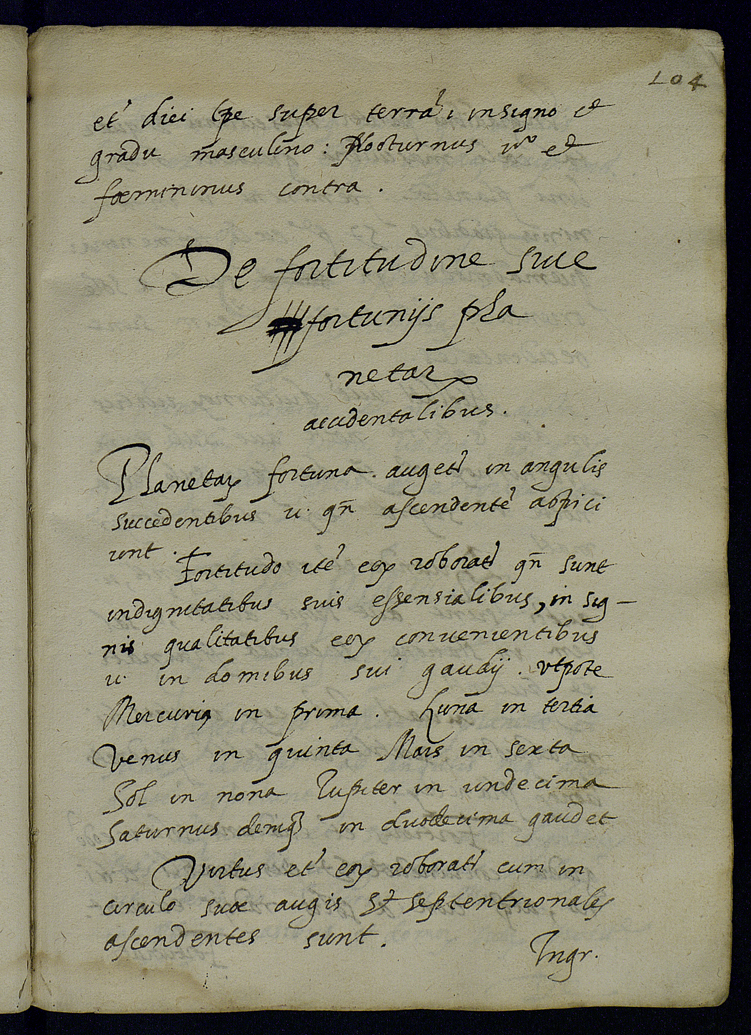 104
et' diei spe super terra' i in signo et
gradu masculino: Nocturnus vo et
foemininus contra.
De fortitudine sive
fortunijs pla
netarꝝ
accidentalibus.
Planetaꝝ fortuna augetr in angulis
succedentibus u. qn̄ ascendente' aspici
unt.
Fortitudo ite' eoꝝ roboratr qn̄ sunt
in dignitatibus suis essensialibus, in sig-
nis qualitatibus eoꝝ convenientibus
u. in domibus sui gaudij. utpote
Mercuriꝯ in prima. Luna in tertia
Venus in quinta Mars in sexta
Sol in nona Jupiter in undecima
Saturnus deniqꝫ in duodecima gaudet
Virtus et' eoꝝ roboratr cum in
circulo suae augis et septentrionales
ascendentes sunt.
Ingr.